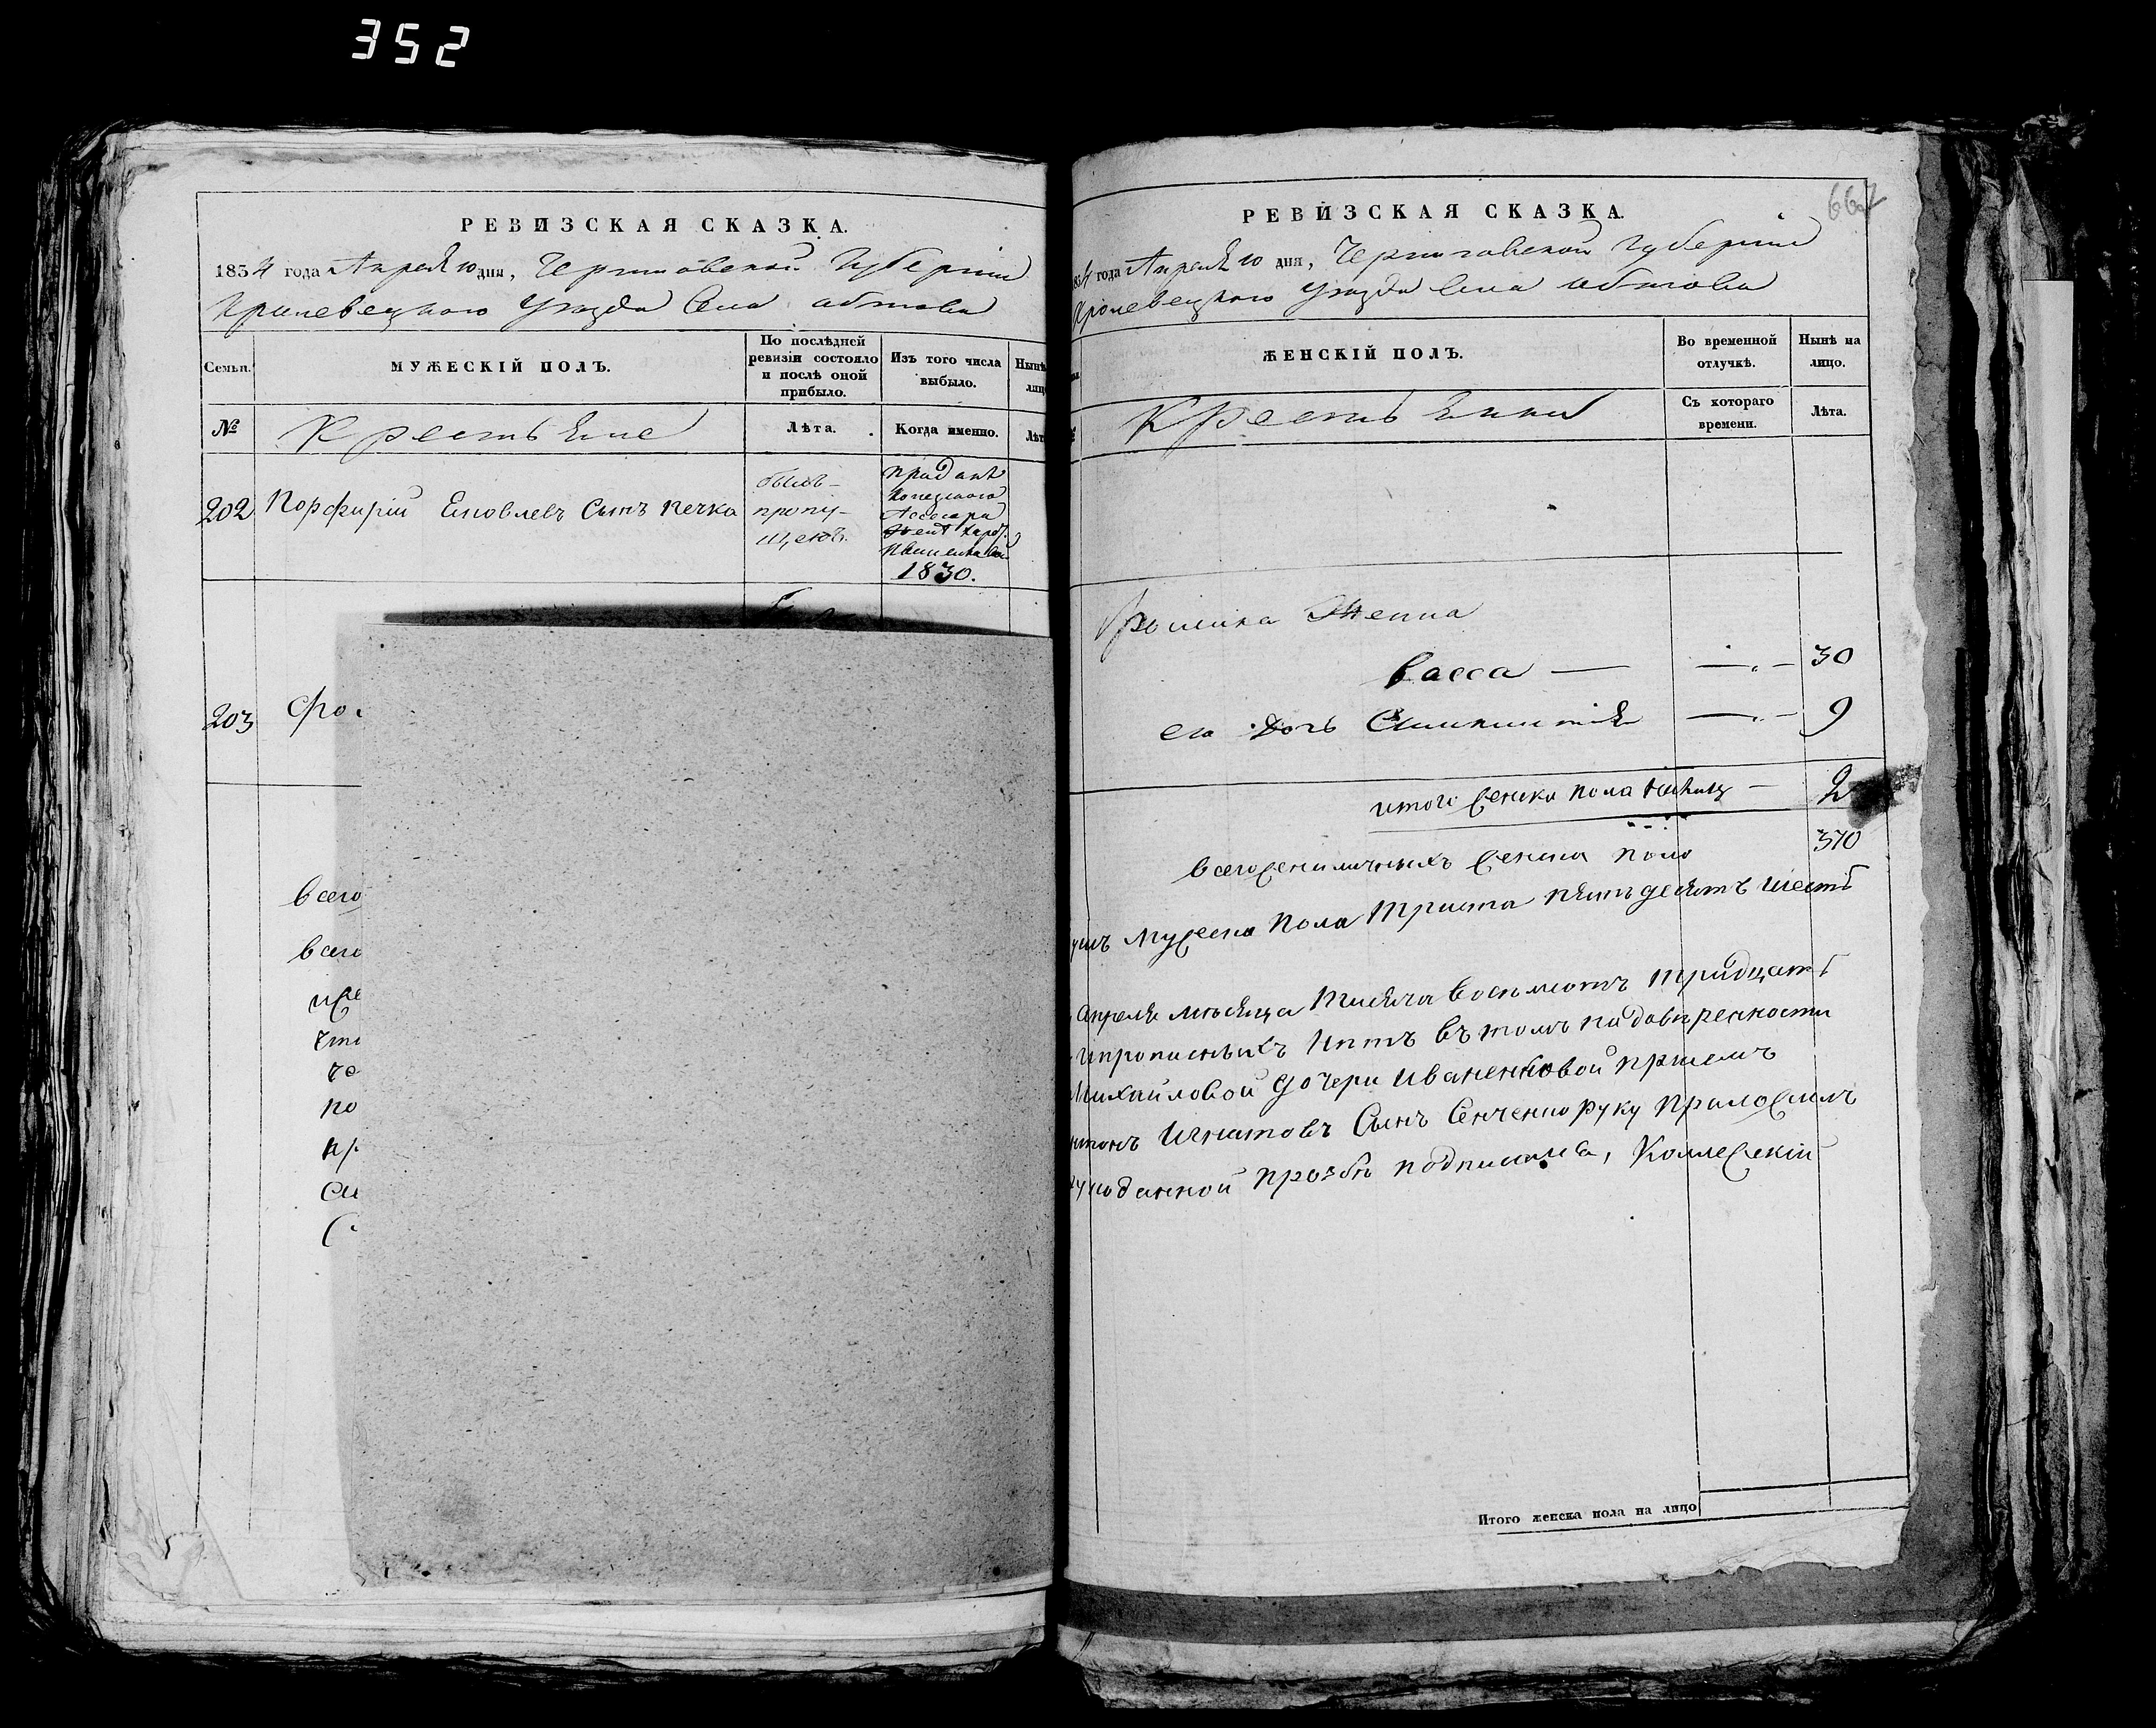 352
РЕВИЗСКАЯ СКАЗКА.
1834 года Апреля 10 дня, Черниговской Губернии
Кролевецкого Уезда Села Обтова
Семьи.
МУЖЕСКІЙ ПОЛЪ.
По послѣдней ревизіи состояло и послѣ оной прибыло.
Изъ того числа выбыло.
Нынѣ
лицо
№
Крестьяне
Лѣта.
Когда именно.
Лѣт
202
Порфирій Яковлевъ Сынъ Печка
былъ
пропу-
щенъ
1830.
203
Фро
всего
всего
по
РЕВИЗСКАЯ СКАЗКА.
667
1834 года Апреля 10 дня, Черниговской Губернии
Кролевецкого Уезда Села Обтова
ЖЕНСКІЙ ПОЛЪ.
Во временной отлучкѣ.
Нынѣ на лицо.
Крестьянки
Съ котораго времени.
Лѣта.
Жена
Васса — 30
его дочь 9
итого женска пола налицо — 2
370
женска пола
мужеска пола Триста пятьдесятъ шесть
Апреля месяца Тысяча восемсотъ тридцать
и прописныхъ нетъ въ томъ по доверенности
Михайловой дочери Иваненковой
Игнатовъ Сынъ Сенченко руку приложилъ
прозбе подписался, Коллежскій
Итого женска пола на лицо